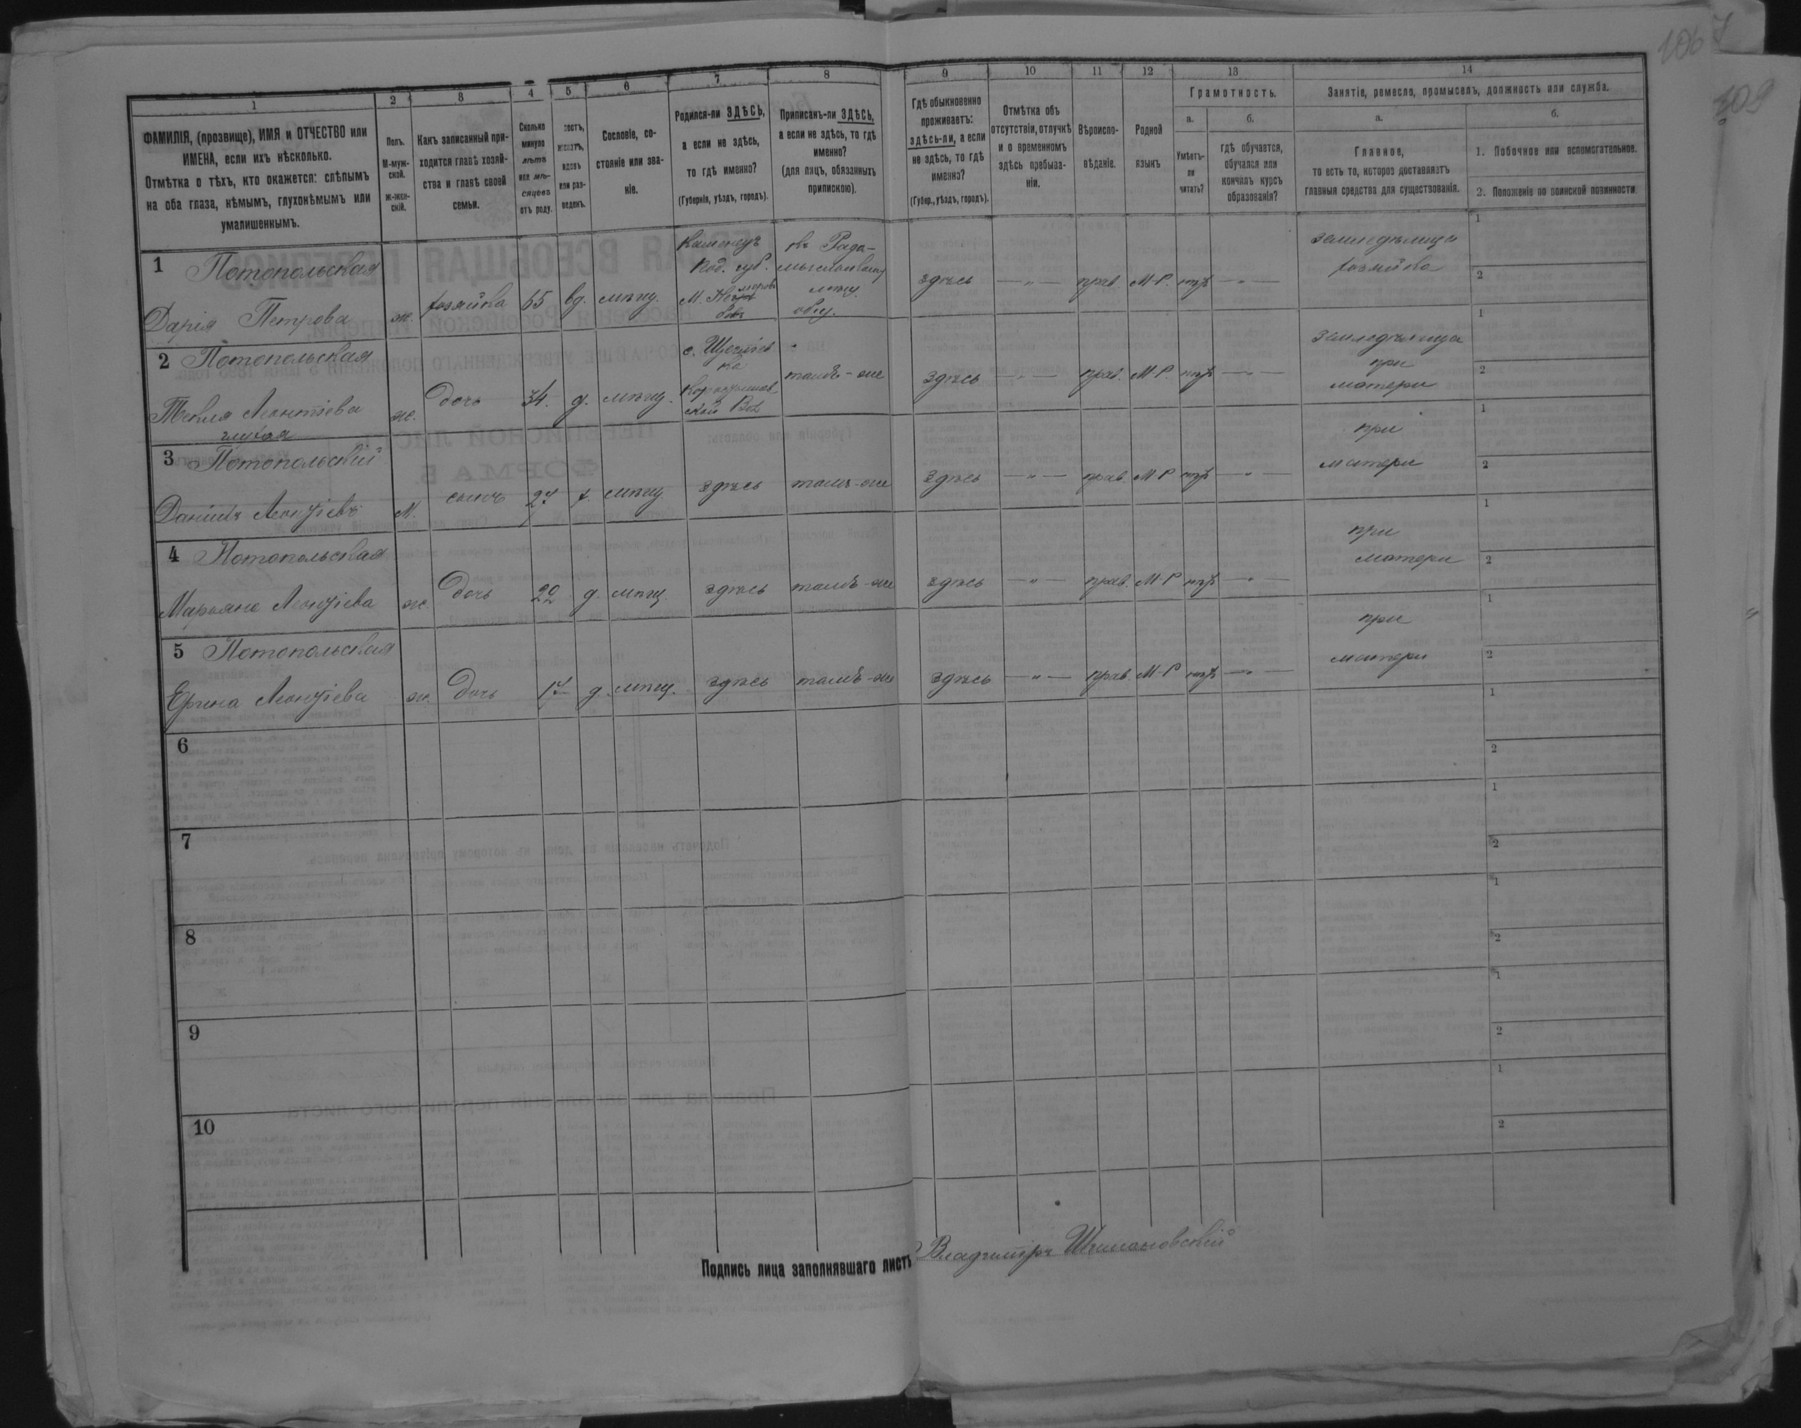 1067
109
1 2 3 4 5 6 7 8 9 10 11 12 13 14
ФАМИЛІЯ, (прозвище), ИМЯ и ОТЧЕСТВО или
ИМЕНА, если ихъ нѣсколько.
Отмѣтка о тѣхъ, кто окажется: слѣпымъ
на оба глаза, нѣмымъ, глухонѣмымъ или
умалишеннымъ.
Полъ.
М-муж-
ской.
Ж-жен-
скій.
Какъ записанный при-
ходится главѣ хозяй-
ства и главѣ своей
семьи.
Сколько
минуло
лѣтъ
или мѣ-
сяцевъ
отъ роду.
Сословіе, со-
стояніе или зва-
ніе.
Родился-ли ЗДѢСЬ,
а если не здѣсь,
то гдѣ именно?
(Губернія, уѣздъ, городъ).
Приписанъ-ли ЗДѢСЬ,
а если не здѣсь, то гдѣ
именно?
(для лицъ, обязанныхъ
припискою).
Гдѣ обыкновенно
проживаетъ:
здѣсь-ли, а если
не здѣсь, то гдѣ
именно?
(Губер., уѣздъ, городъ).
Отмѣтка объ
отсутствіи, отлучкѣ
и о временномъ
здѣсь пребыва-
ніи.
Вѣроиспо-
вѣданіе.
Родной
языкъ
Грамотность.
а.
Умѣетъ-
ли
читать?
б.
гдѣ обучается,
обучался или
кончилъ курсъ
образованія?
Занятіе, ремесло, промыселъ, должность или служба.
а.
Главное,
то есть то, которое доставляетъ
главныя средства для существованія.
б.
1. Побочное или вспомогательное.
2. Положеніе по воинской повинности
1 Потопольская
Дарія Петрова ж. хозяйка 55 вд. мѣщ.
Под. губ.
здѣсь — " — прав. М-Р. нѣтъ — " —
земледѣлица
хозяйка
1
2
2 Потопольская
Текля Леонтіева
глухая
ж. Дочь 34. д. мѣщ. тамъ-же здѣсь — " — прав. М-Р. нѣтъ — " —
земледѣлица
при
матери
1
2
3 Потопольскій
Даніилъ Леонтіевъ М. сынъ 27 х. мѣщ здѣсь тамъ-же здѣсь — " — прав. М-Р нѣтъ — " —
при
матери
1
2
4 Потопольская
Марьяна Леонтіева ж. Дочь 22 д. мѣщ. здѣсь тамъ-же здѣсь — " — прав. М-Р нѣтъ — " —
при
матери
1
2
5 Потопольская
Ерина Леонтіева ж. Дочь 17 д. мѣщ. здѣсь тамъ-же здѣсь — " — прав. М-Р нѣтъ — " —
при
матери
1
2
6
1
2
7
1
2
8
1
2
9
1
2
10
1
2
Подпись лица заполнявшаго листъ Владиміръ Шимановскій